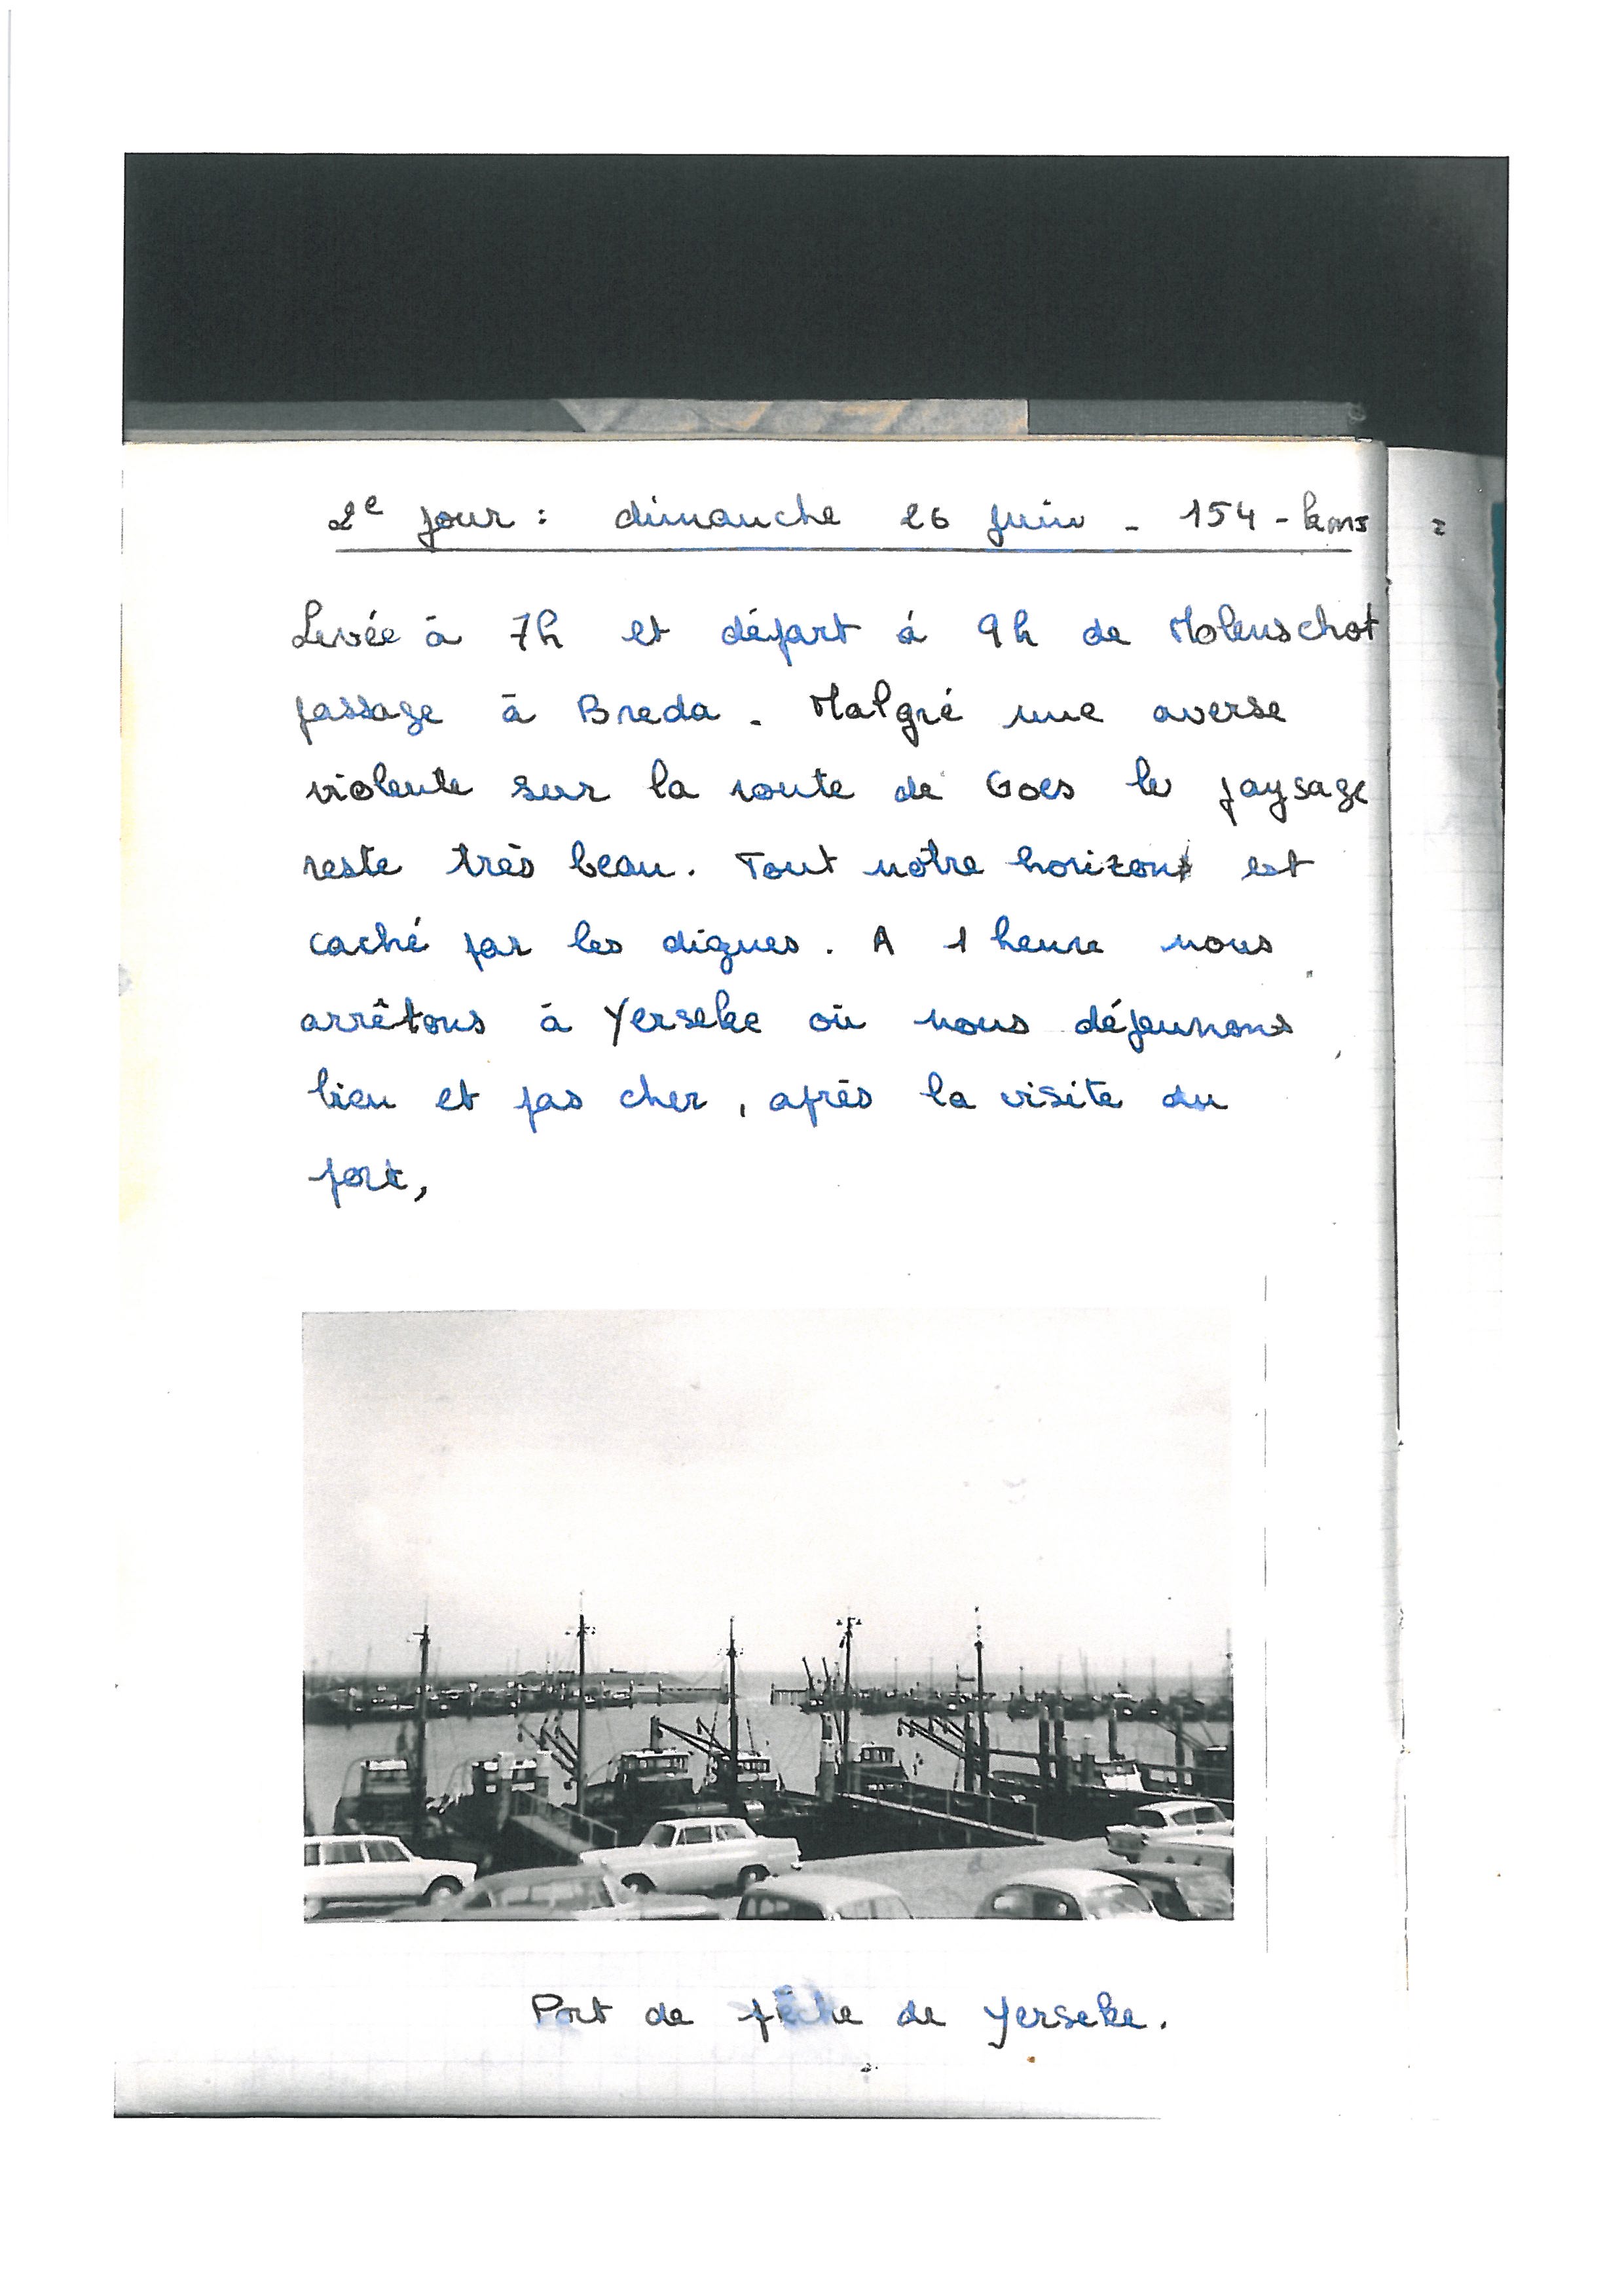 2e jour : dimanche 26 juin - 154 - kms :
Levée à 7h et départ à 9h de Molenschot
passage à Breda. Malgré une averse
violente sur la route de Goes le paysage
reste très beau. Tout notre horizon est
caché par les digues. A 1 heure nous
arrêtons à Yerseke où nous déjeunons
bien et pas cher, après la visite du
port,
Port de pêche de Yerseke.